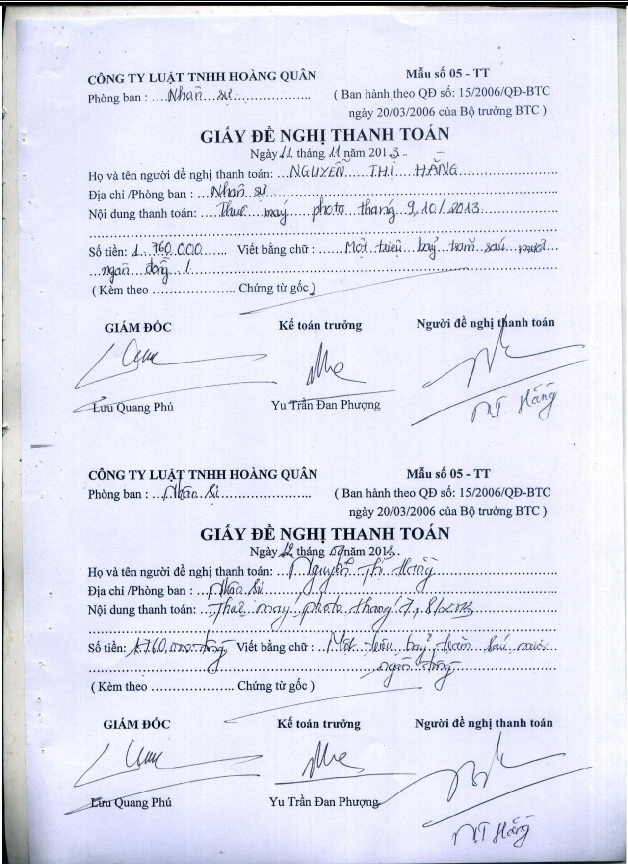 CÔNG TY LUẬT TNHH HOÀNG QUÂN Mẫu số 05 - TT
Phòng ban : ....Nhân sự.................. ( Ban hành theo QĐ số: 15/2006/QĐ-BTC
ngày 20/03/2006 của Bộ trưởng BTC )
GIẤY ĐỀ NGHỊ THANH TOÁN
Ngày 11 tháng 11 năm 2013
Họ và tên người đề nghị thanh toán: NGUYỄN THỊ HẰNG
Địa chỉ /Phòng ban : Nhân sự
Nội dung thanh toán: Thuê máy photo tháng 9,10/2013
Số tiền: 1.760.000 Viết bằng chữ : Một triệu bảy trăm sáu mươi
ngàn đồng /
( Kèm theo .................... Chứng từ gốc )
GIÁM ĐỐC Kế toán trưởng Người đề nghị thanh toán
Lưu Quang Phú Yu Trần Đan Phượng NT Hằng
CÔNG TY LUẬT TNHH HOÀNG QUÂN Mẫu số 05 - TT
Phòng ban : Nhân sự ( Ban hành theo QĐ số: 15/2006/QĐ-BTC
ngày 20/03/2006 của Bộ trưởng BTC )
GIẤY ĐỀ NGHỊ THANH TOÁN
Ngày 12 tháng năm 2013
Họ và tên người đề nghị thanh toán: Nguyễn Thị Hằng
Địa chỉ /Phòng ban : Nhân sự
Nội dung thanh toán: Thuê máy photo tháng 7, 8/2013
Số tiền: 1.760.000 đồng Viết bằng chữ : Một triệu bảy trăm sáu mươi
ngàn đồng
( Kèm theo .................... Chứng từ gốc )
GIÁM ĐỐC Kế toán trưởng Người đề nghị thanh toán
Lưu Quang Phú Yu Trần Đan Phượng
NT Hằng